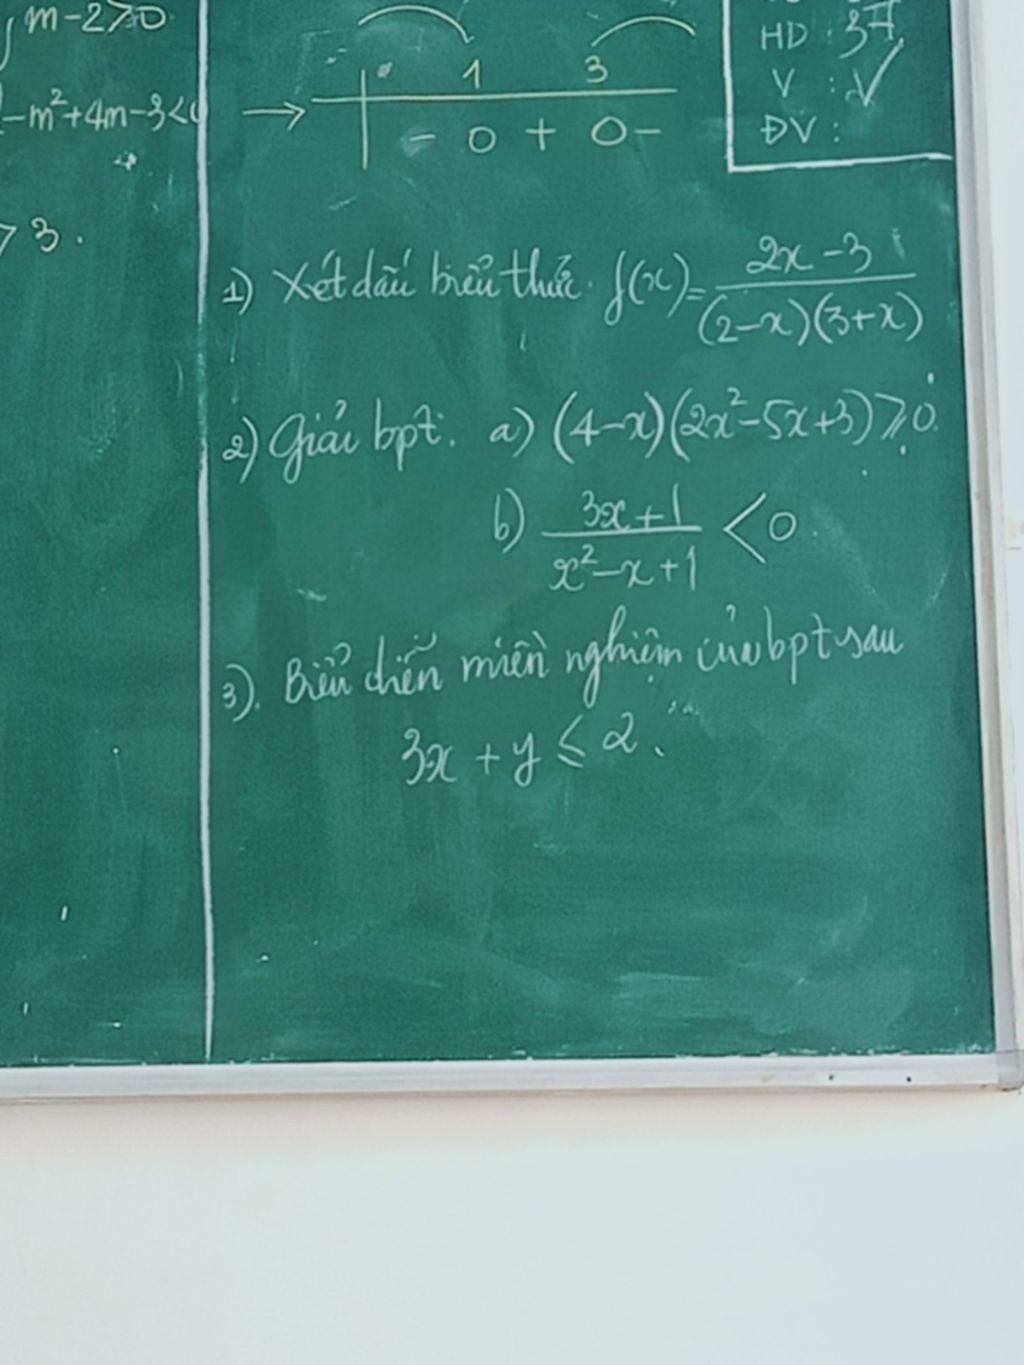 m-2≥0
-m²+4m-3<0 →
> 3.
1 3
- 0 + 0 -
HD : 3π
V : √
ĐV :
1) Xét dấu biểu thức f(x)= (2x-3)/((2-x)(3+x))
2) Giải bpt. a) (4-x)(2x²-5x+3)≥0.
b) (3x+1)/(x²-x+1) <0.
3). Biểu diễn miền nghiệm của bpt sau
3x + y ≤ 2.